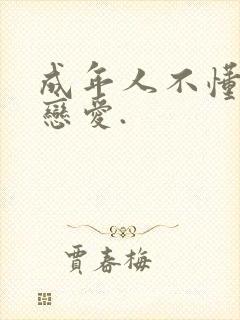 成年人不懂
戀愛.
賈春梅